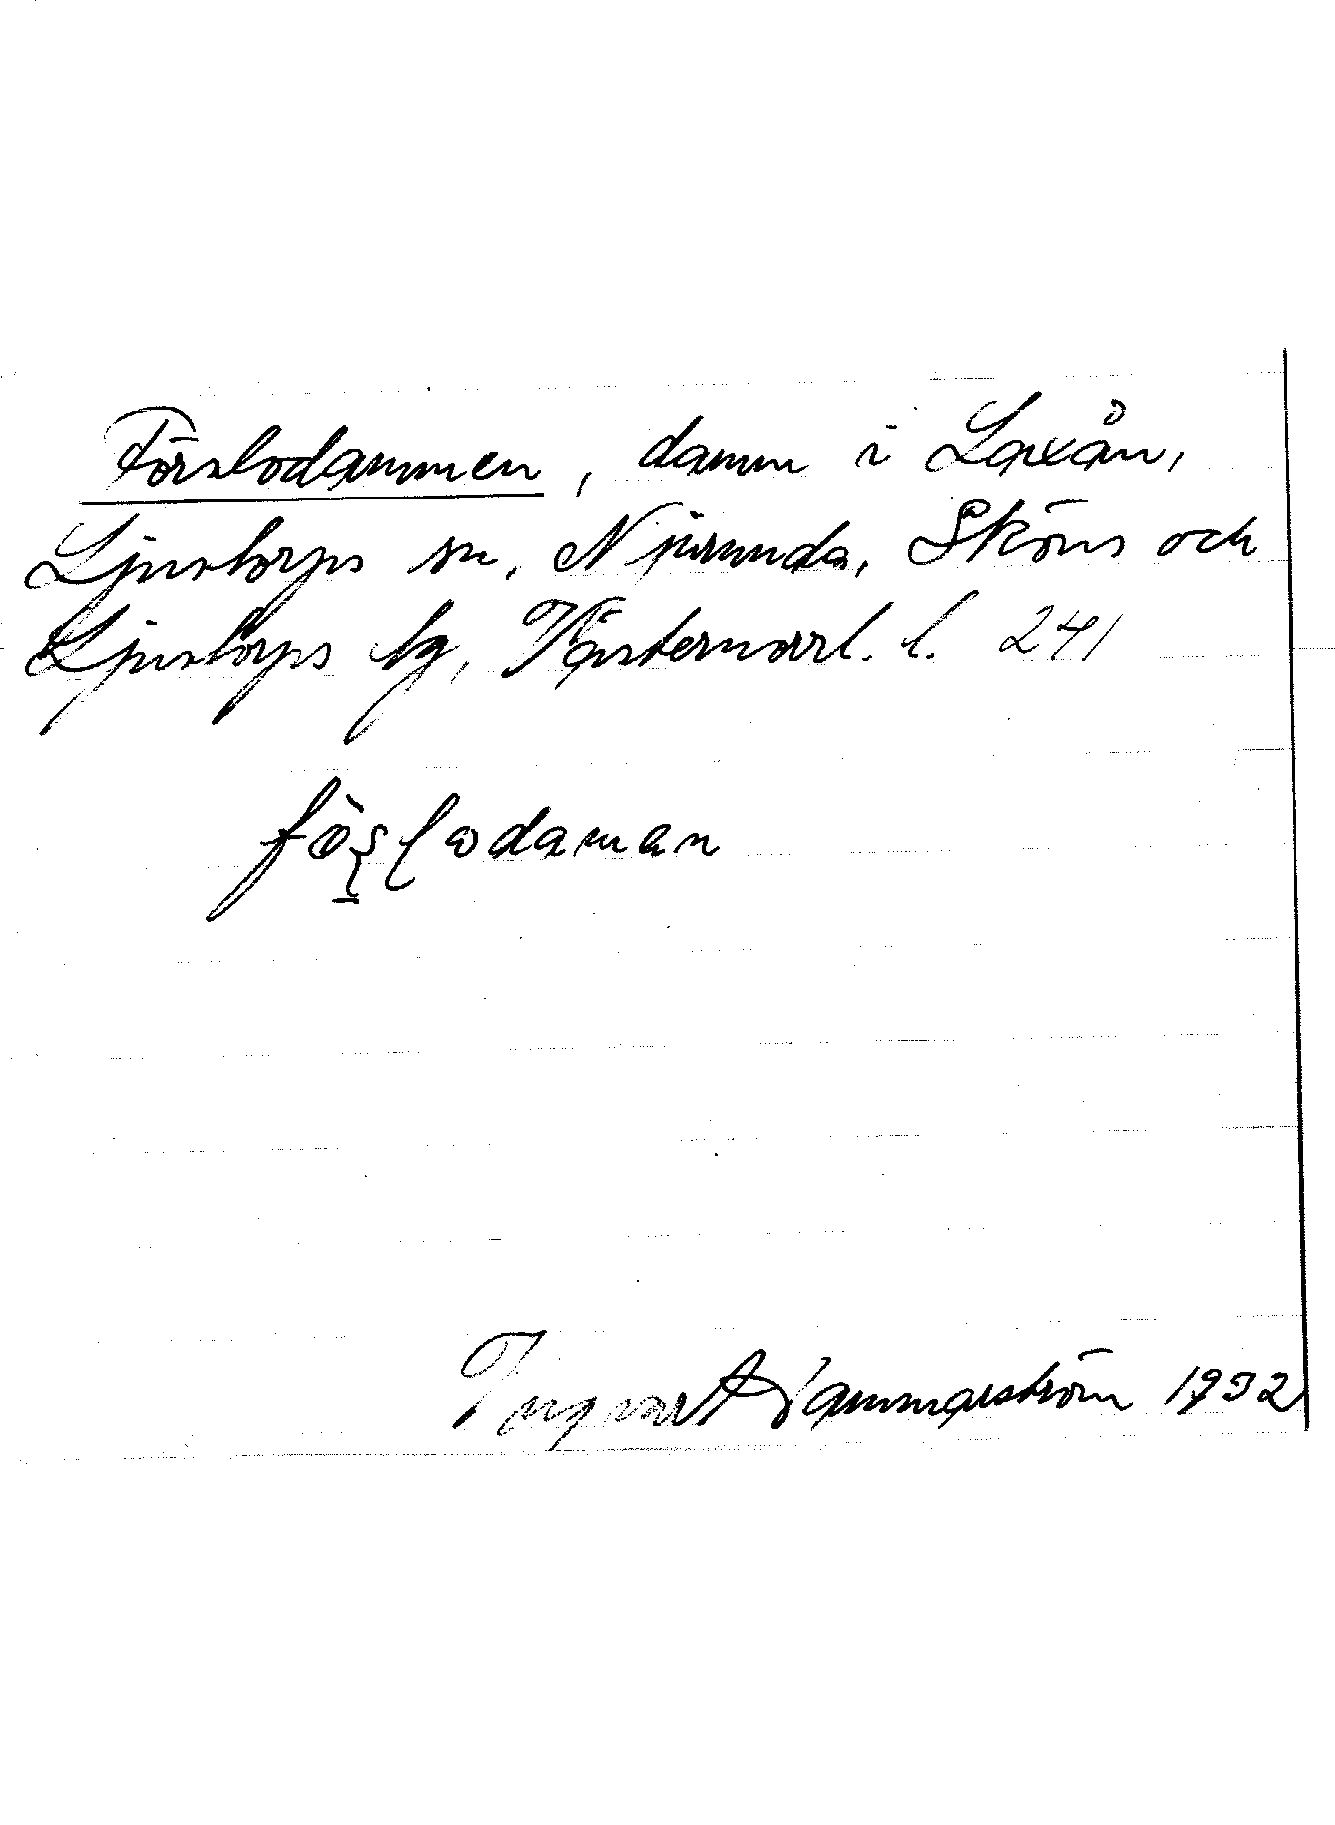 Förslodammen, damm i Laxån,
Ljustorps sn, Njurunda, Sköns och
Ljustorps tg, Västernorrl. l. 241
Ingvar Hammarström 1932